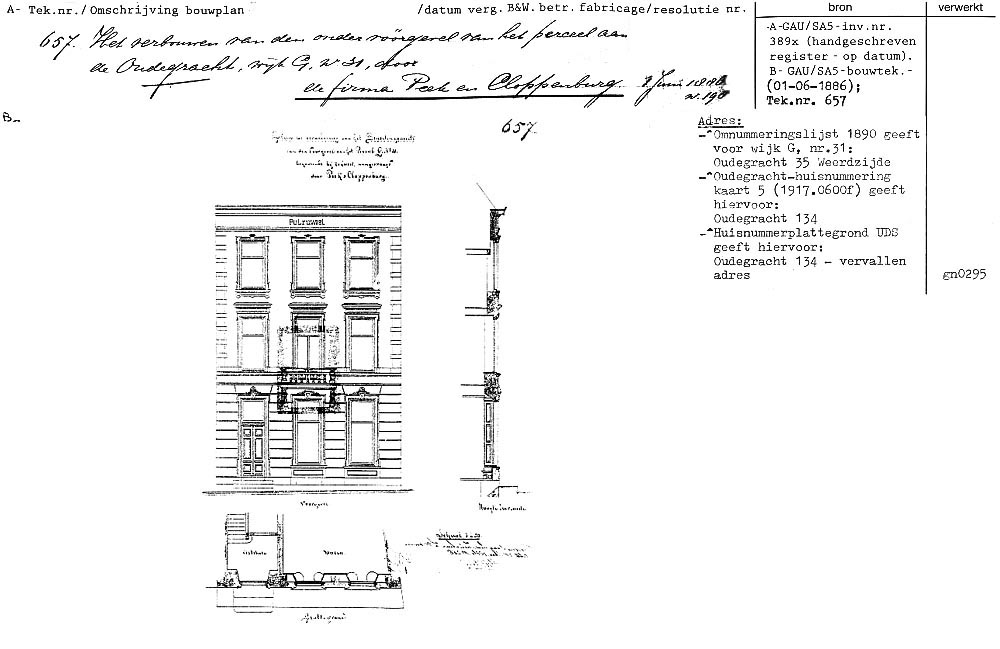 A- Tek.nr./Omschrijving bouwplan /datum verg. B&W. betr. fabricage/resolutie nr.
657. Het verbouwen van den onder voorgevel van het perceel aan
de Oudegracht, wijk G, No 31, door
de firma Peek en Cloppenburg. 1 Juni 1886
n. 190
bron
-A-GAU/SA5-inv.nr.
389x (handgeschreven
register - op datum).
B- GAU/SA5-bouwtek.-
(01-06-1886);
Tek.nr. 657
verwerkt
gn0295
B-
657.
Adres:
-^Omnummeringslijst 1890 geeft
voor wijk G, nr.31:
Oudegracht 35 Weerdzijde
-^Oudegracht-huisnummering
kaart 5 (1917.0600f) geeft
hiervoor:
Oudegracht 134
-^Huisnummerplattegrond UDS
geeft hiervoor:
Oudegracht 134 - vervallen
adres
door Peek & Cloppenburg.
Voorgevel